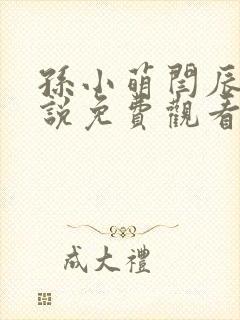 孫小萌閆辰
說免費觀看
成大禮